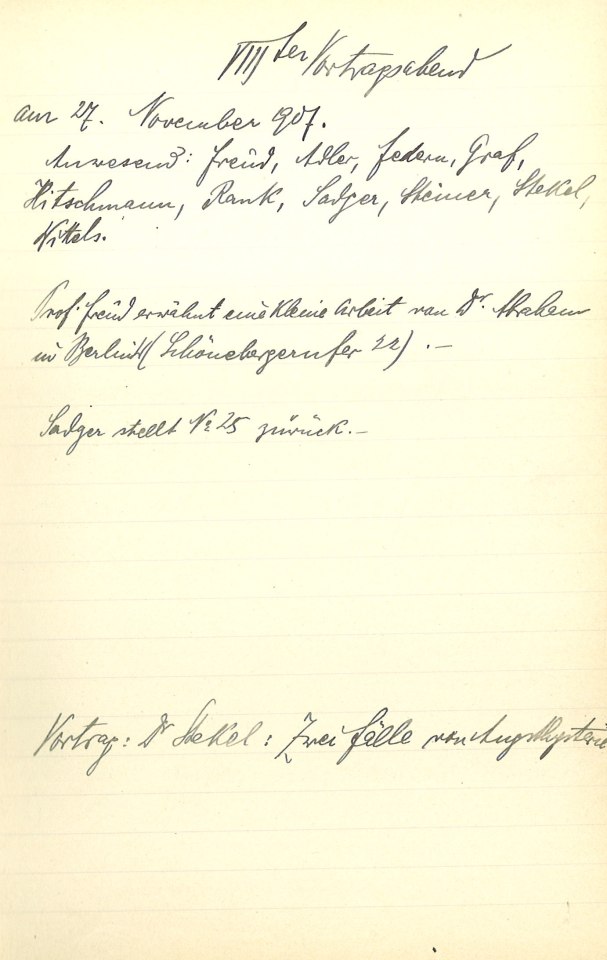 VIIIter Vortragsabend
am 27. November 907.
Anwesend: Freud, Adler, Federn, Graf,
Hitschmann, Rank, Sadger, Steiner, Stekel,
Wittels.
Prof. Freud erwähnt eine kleine Arbeit von Dr. Abraham
in Berlin (Schönebergerufer 22). —
Sadger stellt No 25 zurück. —
Vortrag: Dr Stekel: Zwei Fälle von Angsthysterie